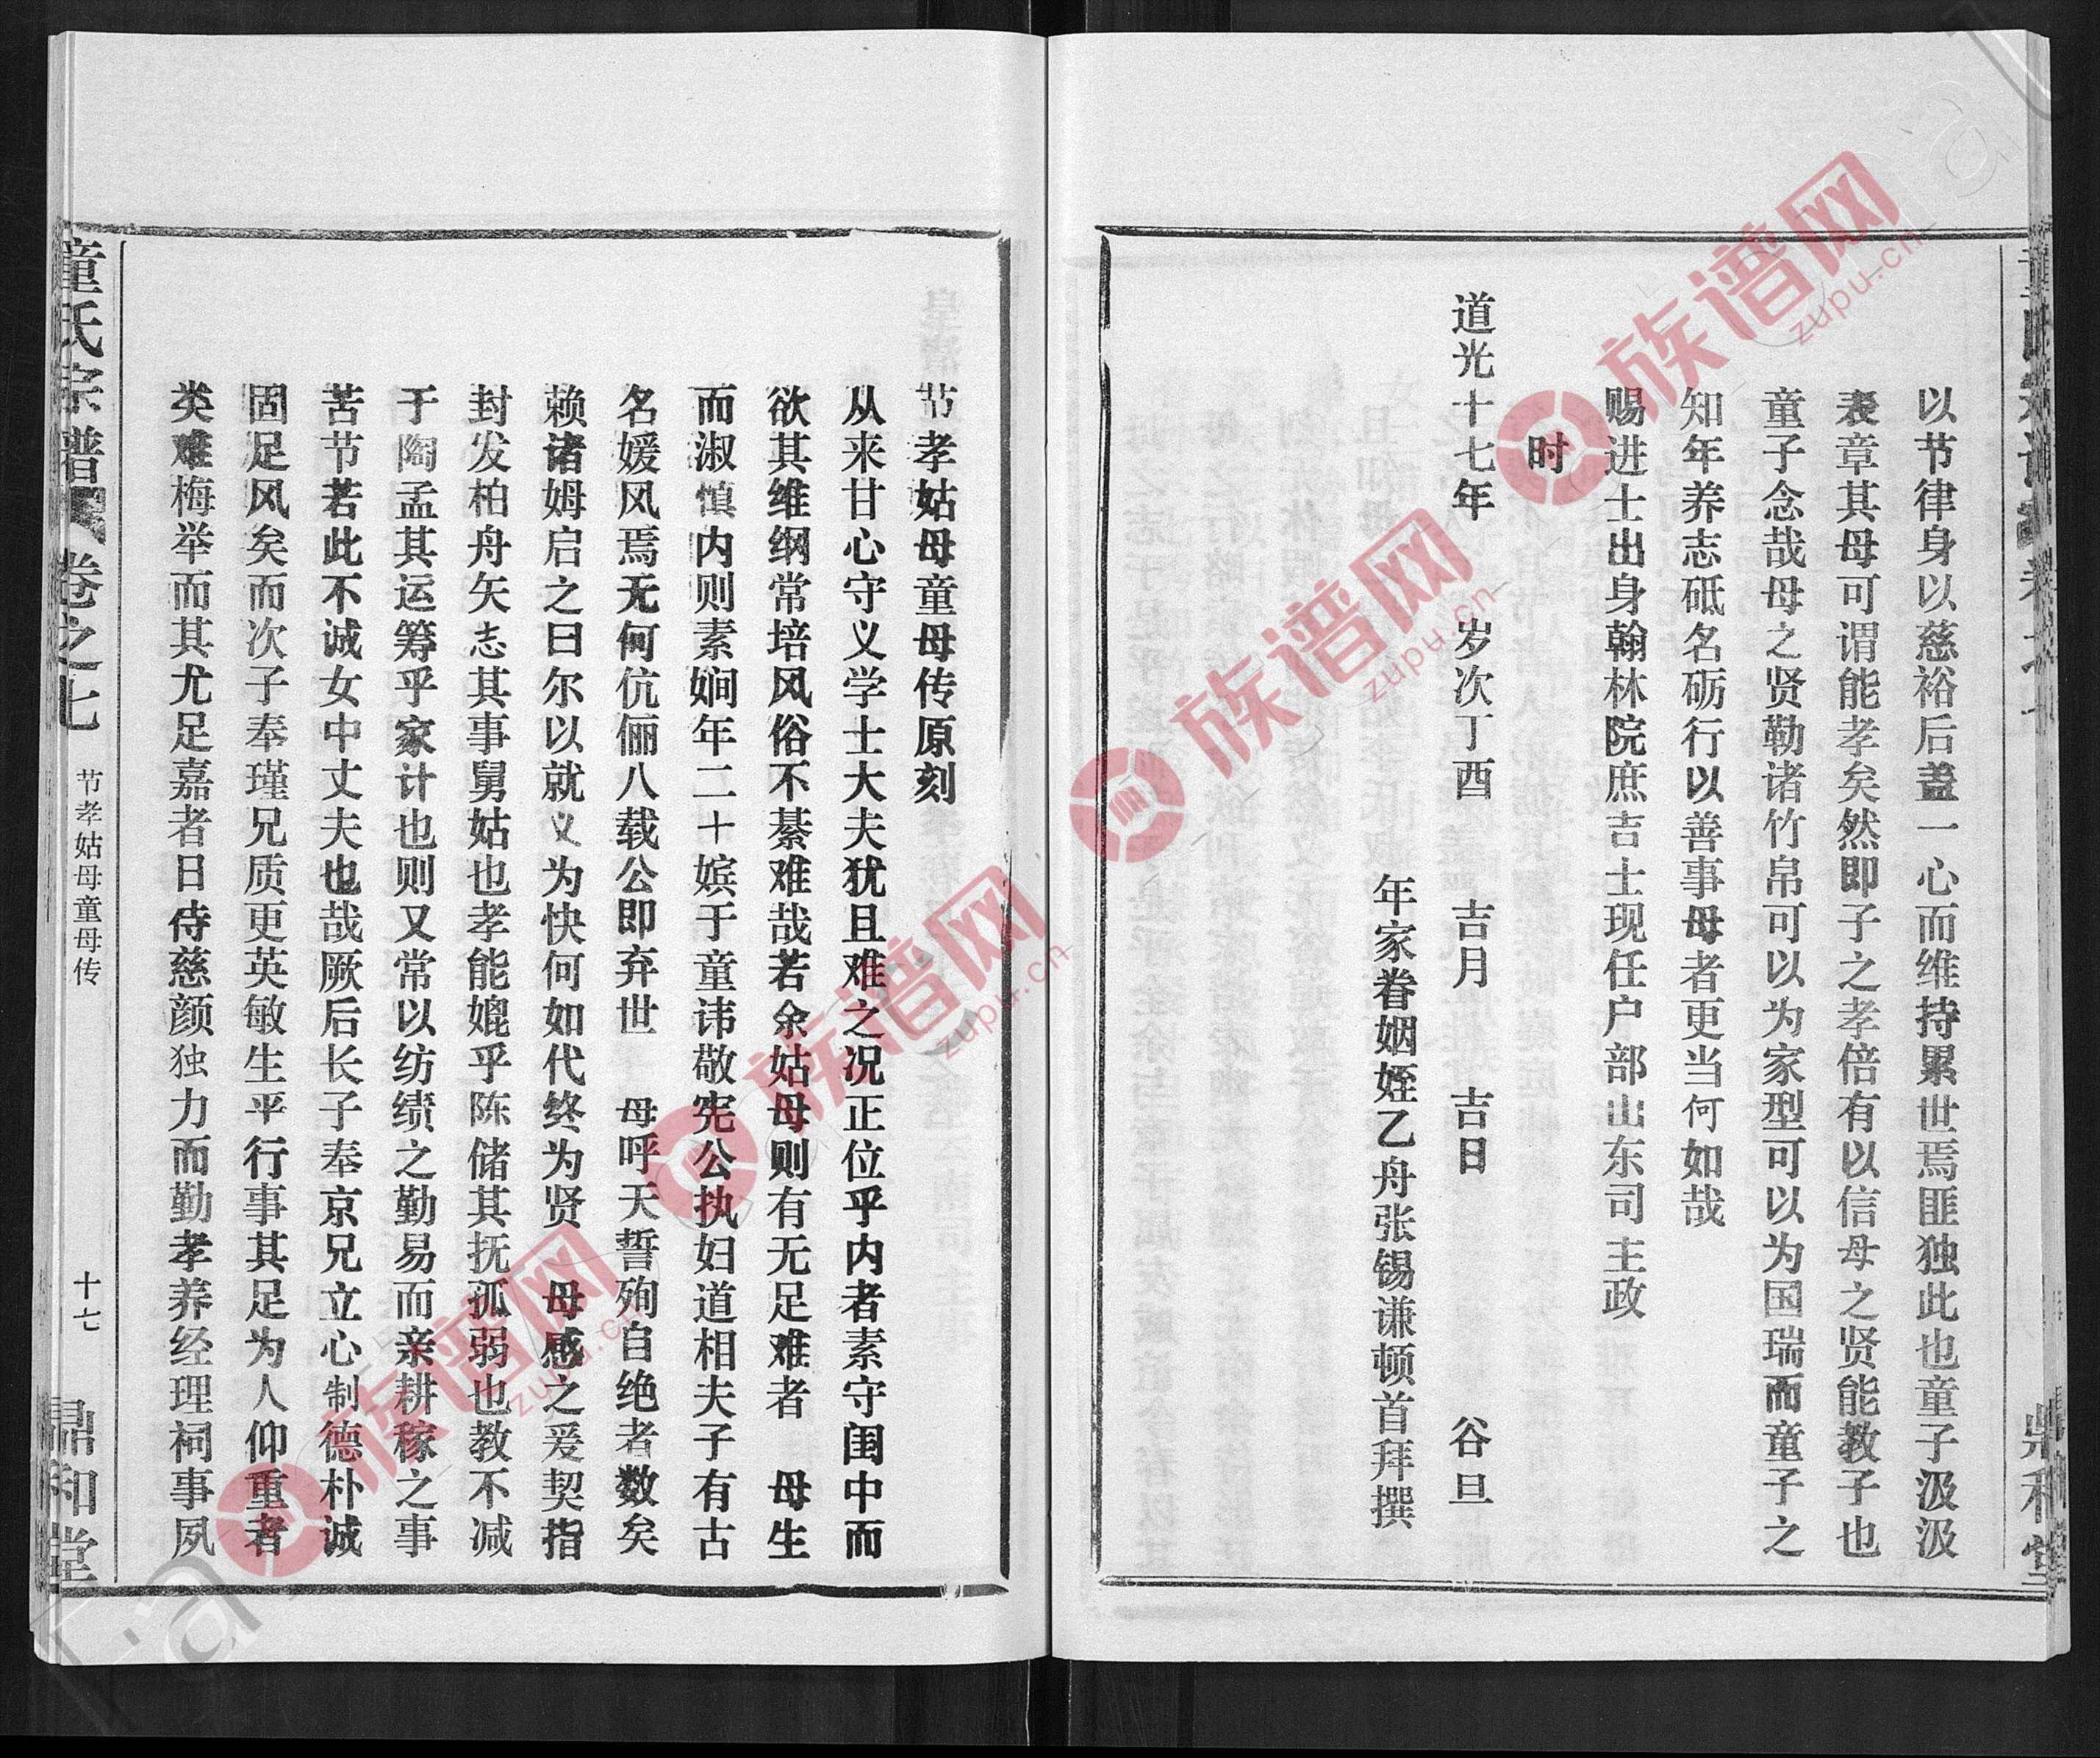 以节律身以慈裕后盖一心而维持累世焉匪独此也童子汲汲
表章其母可谓能孝矣然即子之孝倍有以信母之贤能教子也
童子念哉母之贤勒诸竹帛可以为家型可以为国瑞而童子之
知年养志砥名砺行以善事母者更当何如哉
赐进士出身翰林院庶吉士现任户部山东司主政
时
道光十七年 岁次丁酉 吉月 吉日 谷旦
年家眷姻姪乙舟张锡谦顿首拜撰
节孝姑母童母传原刻
从来甘心守义学士大夫犹且难之况正位乎内者素守闺中而
欲其维纲常培风俗不綦难哉若余姑母则有无足难者 母生
而淑慎内则素娴年二十嫔于童讳敬宪公执妇道相夫子有古
名媛风焉无何伉俪八载公即弃世 母呼天誓殉自绝者数矣
赖诸姆启之曰尔以就义为快何如代终为贤 母感之爰契指
封发柏舟矢志其事舅姑也孝能媲乎陈储其抚孤弱也教不减
于陶孟其运筹乎家计也则又常以纺绩之勤易而亲耕稼之事
苦节若此不诚女中丈夫也哉厥后长子奉京兄立心制德朴诚
固足风矣而次子奉瑾兄质更英敏生平行事其足为人仰重者
类难梅举而其尤足嘉者日侍慈颜独力而勤孝养经理祠事夙
童氏宗谱 卷之七 节孝姑母童母传 十七 鼎和堂
鼎和堂
族谱网
zupu.cn
族谱网
zupu.cn
族谱网
zupu.cn
族谱网
zupu.cn